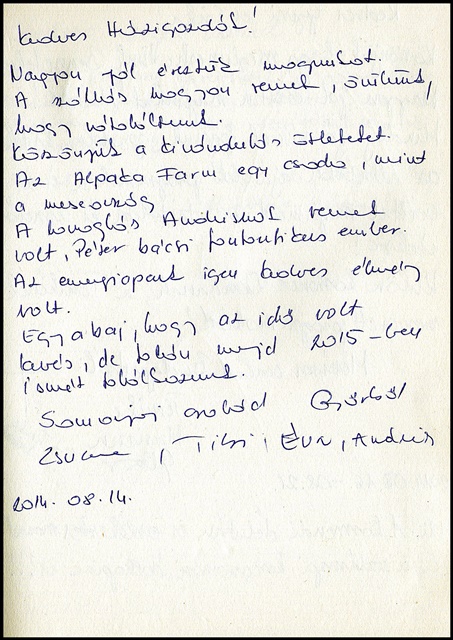 Kedves Házigazdák!
Nagyon jól éreztük magunkat.
A szállás nagyon remek, örülünk,
hogy rátaláltunk.
Köszönjük a kirándulás ötleteket.
Az Alpaka Farm egy csoda, mint
a meseország
A lovaglás Andrisnak remek
volt, Péter bácsi fantasztikus ember.
Az energiapark igen kedves élmény
volt.
Egy a baj, hogy az idő volt
kevés, de talán majd 2015-ben
ismét találkozunk.
Somogyi család
Zsuzsa, Tibi, Éva, András
2014. 08. 14.